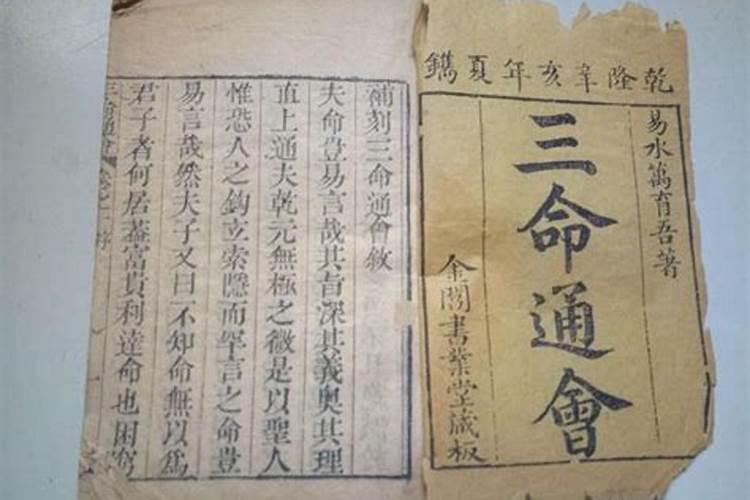 乾隆辛亥年夏鐫
易水萬育吾著
三命通會
金閶書業堂藏板
補刻三命通會敘
夫命豈易言哉其旨深其義奧其理
直上通夫乾元無極之微是以聖人
惟恐人之鈎立索隱而罕言之命豈
易言哉然夫子又曰不知命無以為
君子者何居葢富貴利達命也困窮
三命通會 序 一